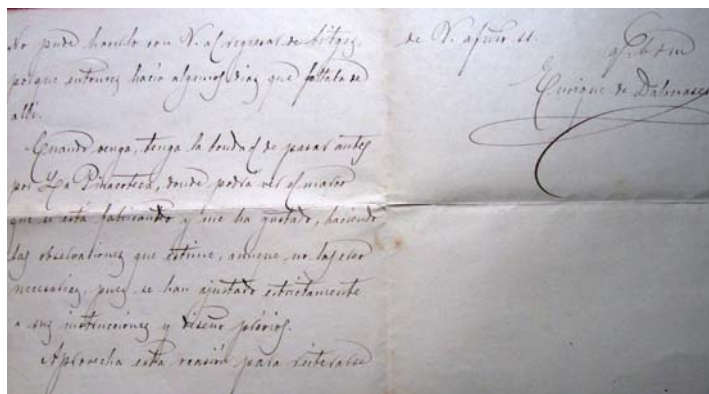 No pude hacerlo con V. al regresar de Sitges,
porque entonces hacia algunos dias que faltaba de
allí.
Cuando venga, tenga la bondad de pasar antes
por La Pinacoteca, donde podrá ver el marco
que se está fabricando y me ha gustado, haciendo
las observaciones que estime, aunque no las creo
necesarias, pues se han ajustado estrictamente
a sus instrucciones y diseño prévios.
Aprovecha esta ocasión para reiterarse
de V. afmo ss.
q. b. s. m
Enrique de Dalmases